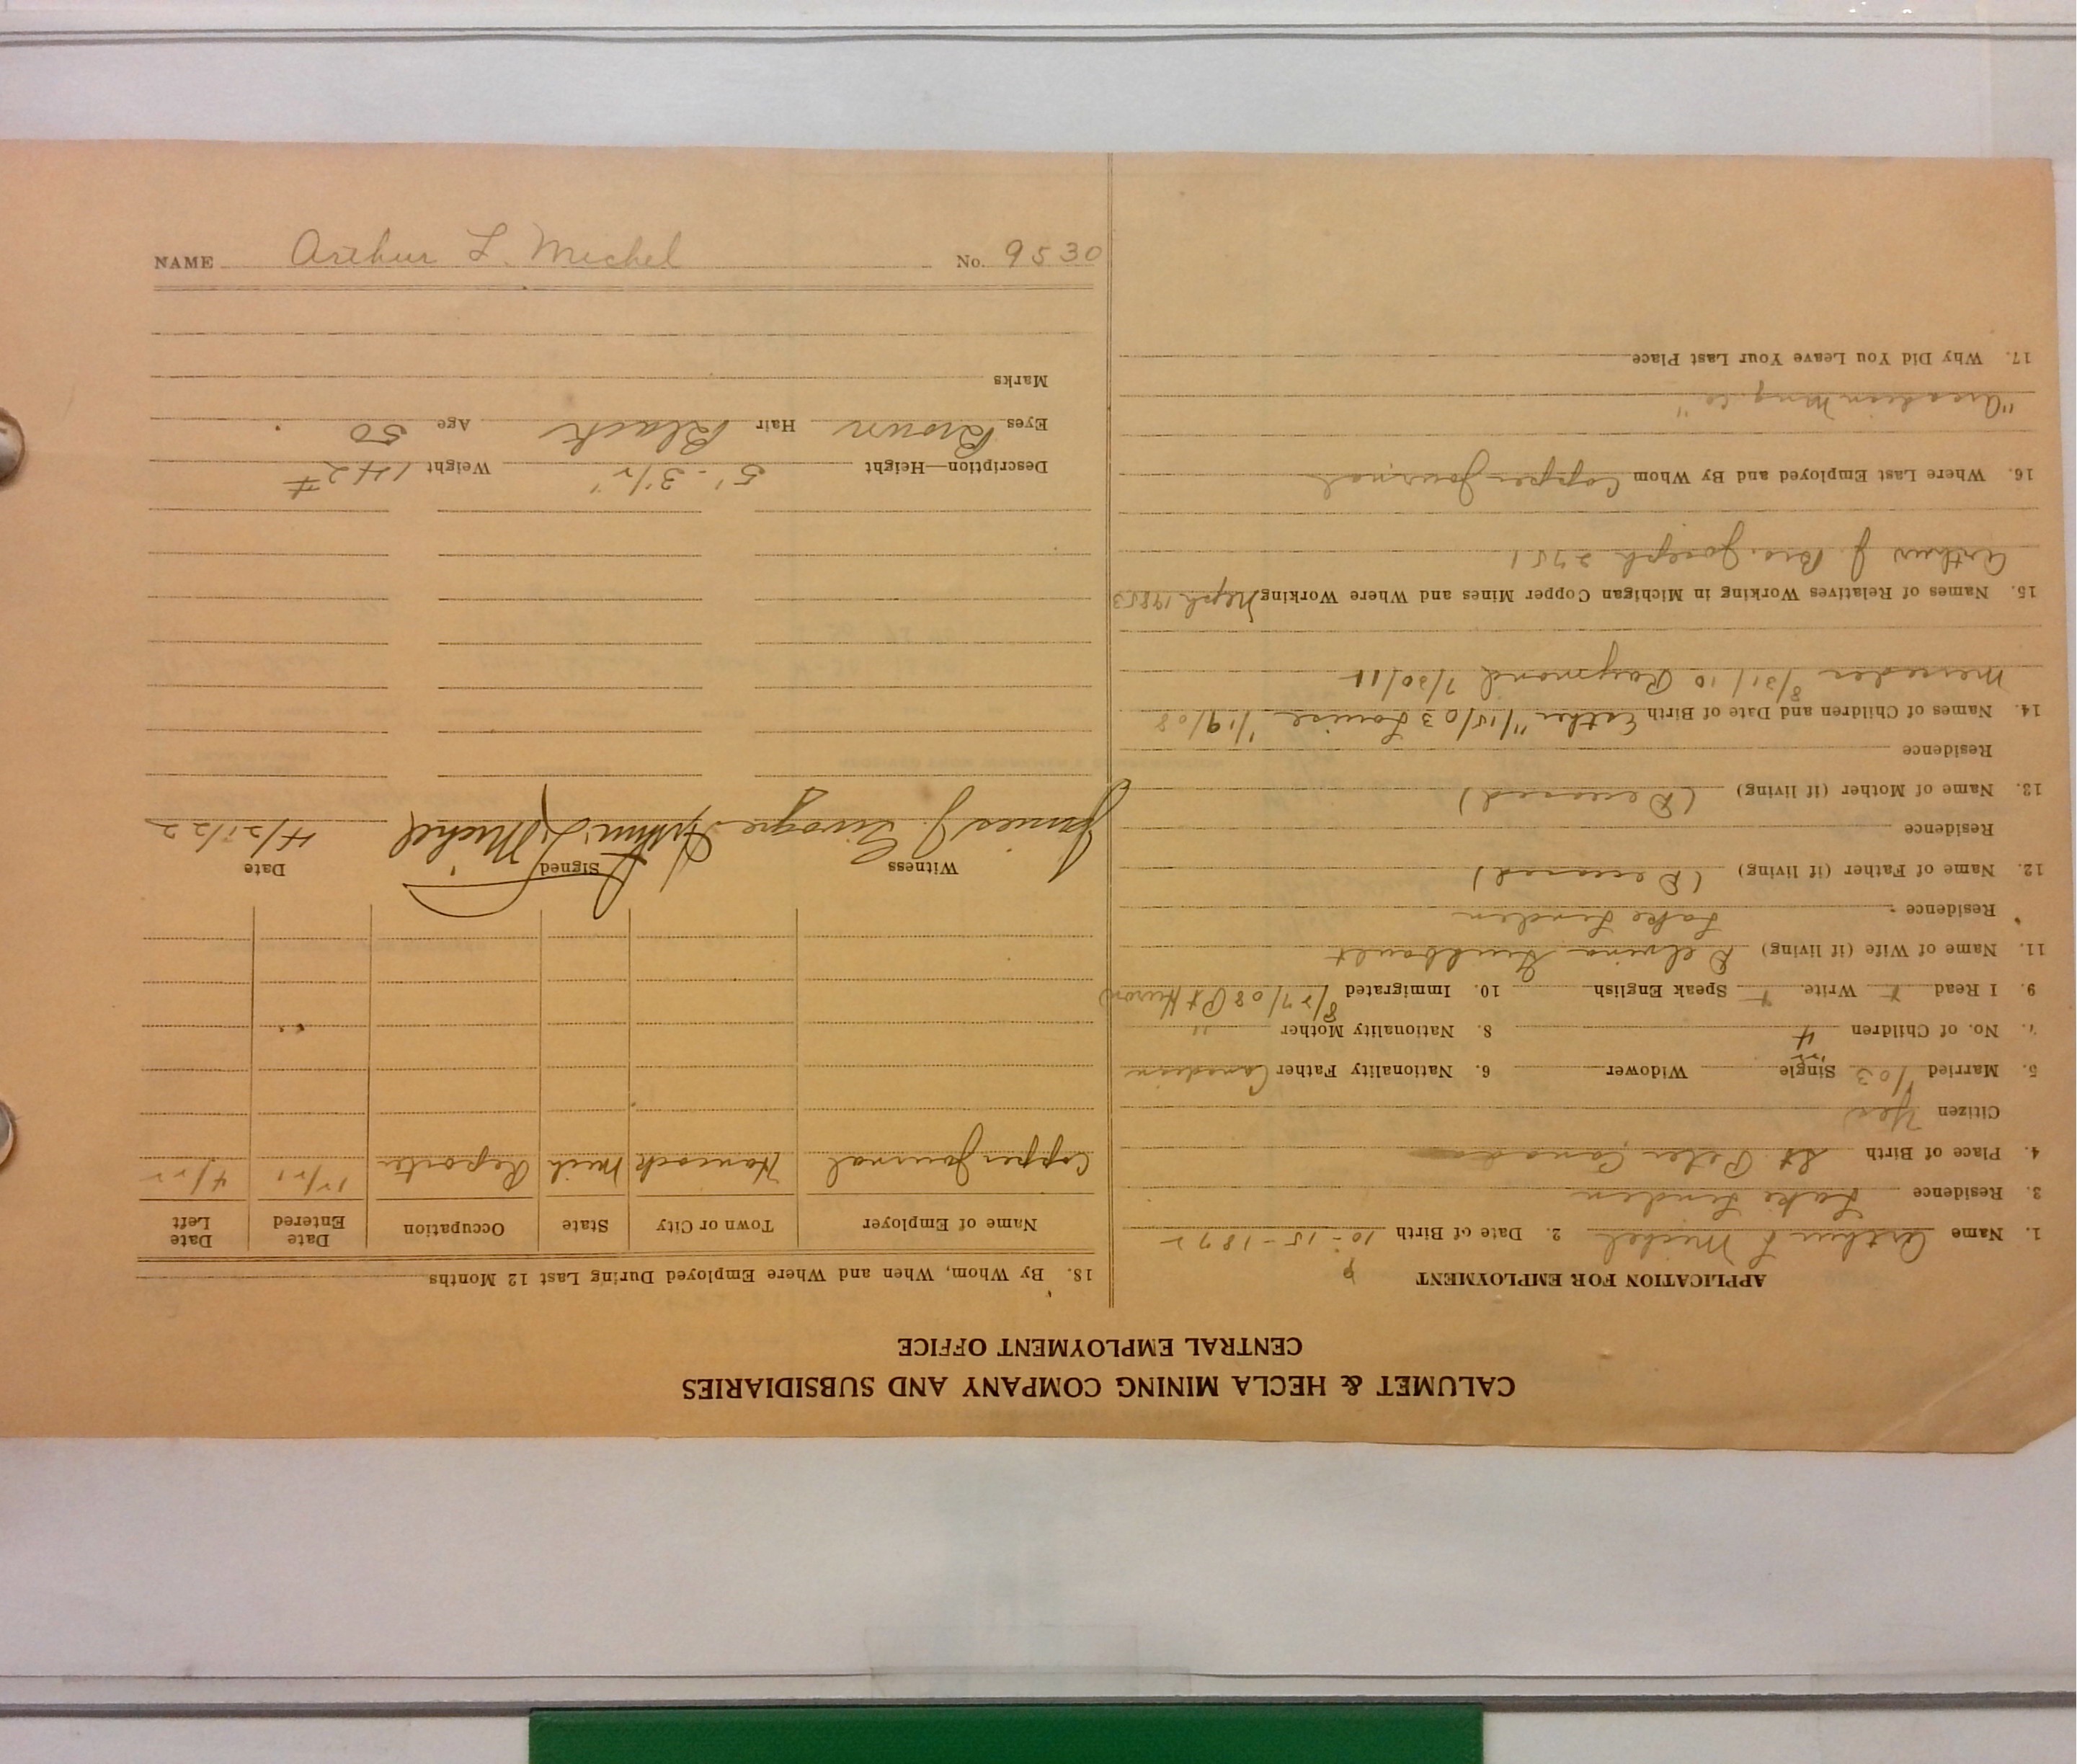 CALUMET & HECLA MINING COMPANY AND SUBSIDIARIES
CENTRAL EMPLOYMENT OFFICE
APPLICATION FOR EMPLOYMENT
1. Name Arthur L Michel 2. Date of Birth 10-15-1872
3. Residence Lake Linden
4. Place of Birth St. Peter Canada
Citizen Yes
5. Married /03 Single Widower 6. Nationality Father Canadian
7. No. of Children 4 8. Nationality Mother "
9. I Read + Write + Speak English 10. Immigrated 8/27/08 (Pt Huron)
11. Name of Wife (if living) Delvina
Residence Lake Linden
12. Name of Father (if living) (Deceased)
Residence
13. Name of Mother (if living) (Deceased)
Residence
14. Names of Children and Date of Birth Esther 11/15/03 Louise 1/19/08
8/31/10 Raymond 7/30/11
15. Names of Relatives Working in Michigan Copper Mines and Where Working Neph 19853
Arthur J. Bro. Joseph 2751
16. Where Last Employed and By Whom Copper Journal
"Arcadian Mng. Co"
17. Why Did You Leave Your Last Place
18. By Whom, When and Where Employed During Last 12 Months
Name of Employer Town or City State Occupation Date Entered Date Left
Copper Journal Hancock Mich Reporter 12/21 4/22
Witness Signed Date
James J. Arthur L. Michel 4/21/22
Description—Height 5'-3 1/2" Weight 142 #
Eyes Brown Hair Black Age 50
Marks
NAME Arthur L. Michel No. 9530